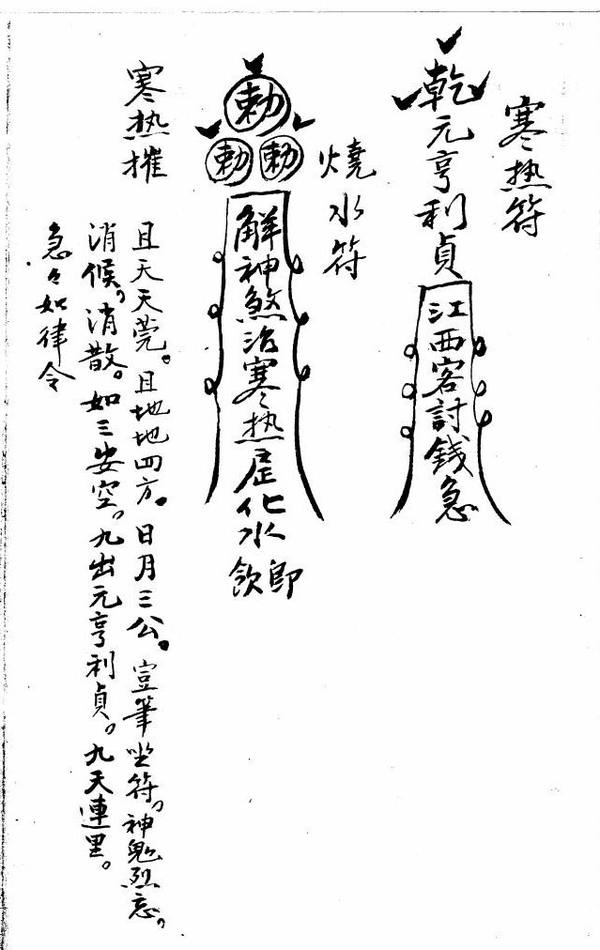 寒热符
乾元亨利貞
江西客討錢急
燒水符
勅
勅勅
解神煞治寒热
化水
即飲
寒热摧
且天天莞。且地地四方。日月三公。豈筆坐符，神鬼烈忘，
消候，消散。如三安空，九出元亨利貞。九天連里。
急々如律令